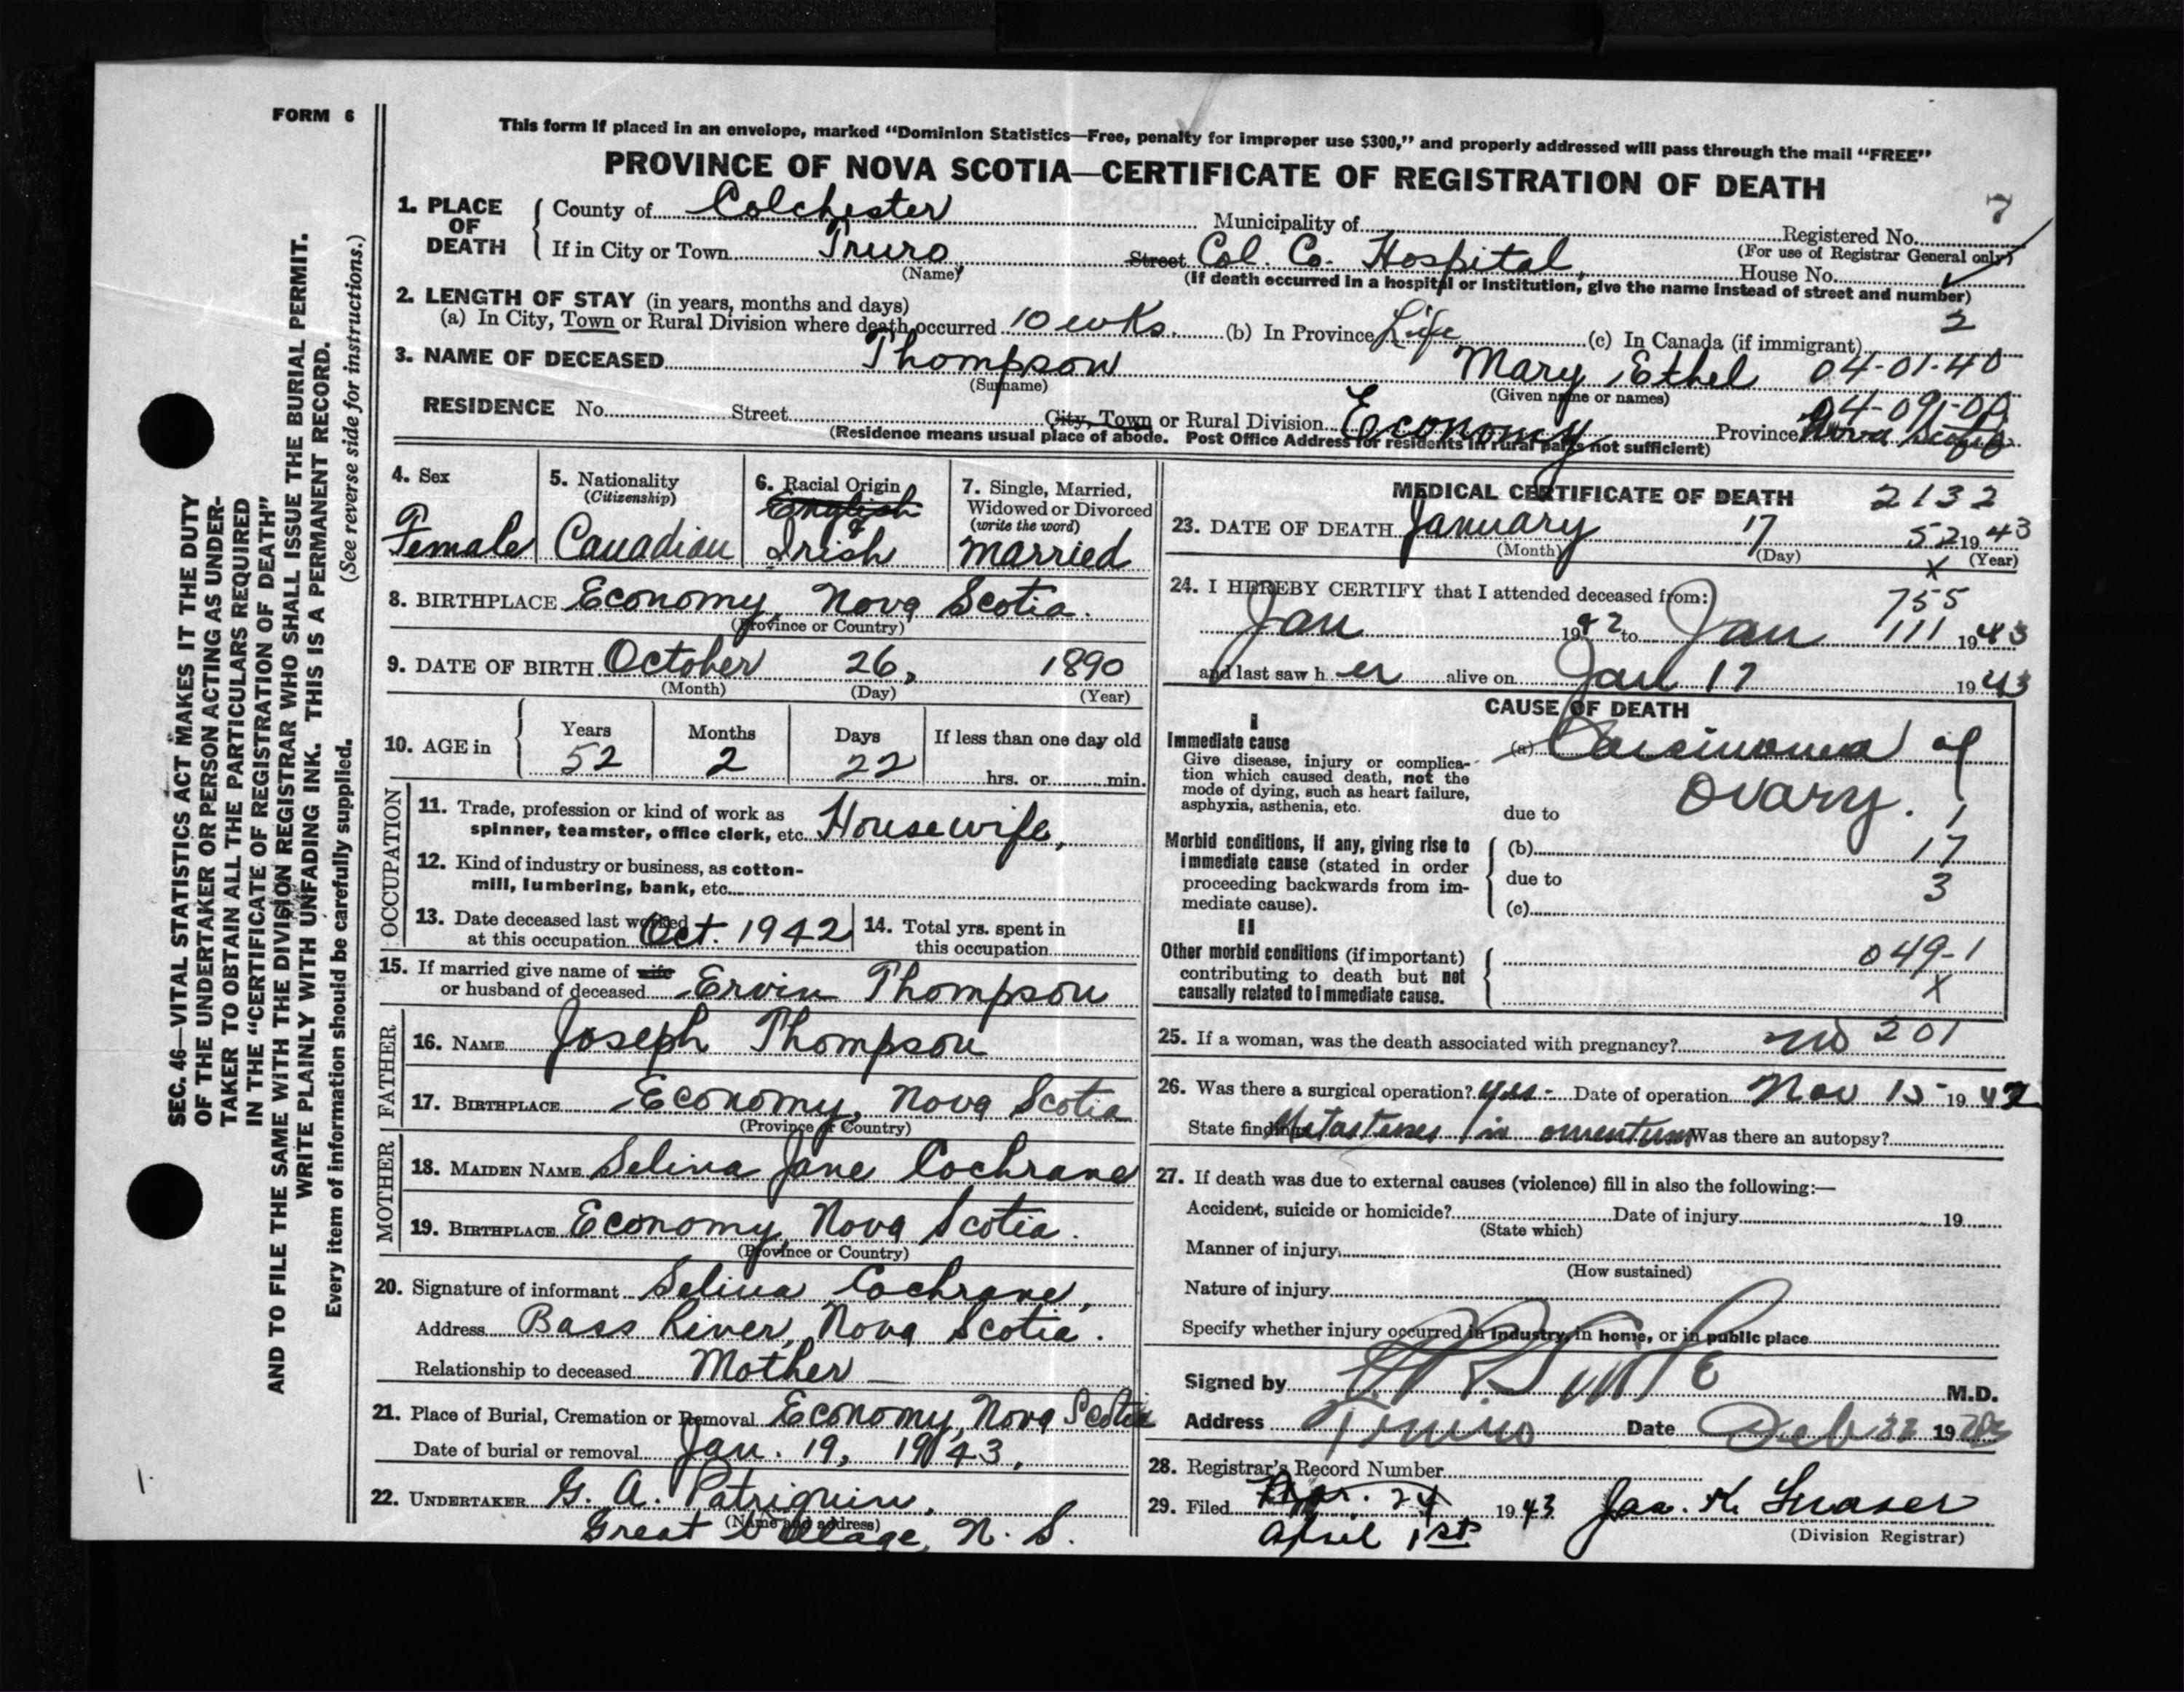 FORM 6
This form if placed in an envelope, marked "Dominion Statistics—Free, penalty for improper use $300," and properly addressed will pass through the mail "FREE"
PROVINCE OF NOVA SCOTIA—CERTIFICATE OF REGISTRATION OF DEATH
7
1. PLACE OF DEATH County of Colchester Municipality of Registered No.
(For use of Registrar General only)
If in City or Town Truro Street Col. Co. Hospital, House No.
(Name) (If death occurred in a hospital or institution, give the name instead of street and number)
2. LENGTH OF STAY (in years, months and days)
2
(a) In City, Town or Rural Division where death occurred 10 wks. (b) In Province Life (c) In Canada (if immigrant)
3. NAME OF DECEASED Thompson Mary Ethel 04-01-40
(Surname) (Given name or names)
04-091-00
RESIDENCE No. Street City, Town or Rural Division Economy Province Nova Scotia
(Residence means usual place of abode. Post Office Address for residents in rural parts not sufficient)
4. Sex Female
5. Nationality (Citizenship) Canadian
6. Racial Origin English & Irish
7. Single, Married, Widowed or Divorced (write the word) married
8. BIRTHPLACE Economy, Nova Scotia.
(Province or Country)
9. DATE OF BIRTH October 26, 1890
(Month) (Day) (Year)
10. AGE in Years 52 Months 2 Days 22 If less than one day old
hrs. or min.
OCCUPATION
11. Trade, profession or kind of work as
spinner, teamster, office clerk, etc. Housewife,
12. Kind of industry or business, as cotton-
mill, lumbering, bank, etc.
13. Date deceased last worked
at this occupation Oct. 1942
14. Total yrs. spent in
this occupation
15. If married give name of wife
or husband of deceased Ervin Thompson
FATHER
16. NAME Joseph Thompson
17. BIRTHPLACE Economy, Nova Scotia
(Province or Country)
MOTHER
18. MAIDEN NAME Selina Jane Cochrane
19. BIRTHPLACE Economy, Nova Scotia.
(Province or Country)
20. Signature of informant Selina Cochrane,
Address Bass River, Nova Scotia.
Relationship to deceased Mother
21. Place of Burial, Cremation or Removal Economy, Nova Scotia
Date of burial or removal Jan. 19, 1943,
22. UNDERTAKER G. A. Patriquin,
(Name and address)
Great Village, N. S.
MEDICAL CERTIFICATE OF DEATH 2132
23. DATE OF DEATH January 17 52 1943
(Month) (Day) (Year)
X
24. I HEREBY CERTIFY that I attended deceased from:
755
Jan 1942 to Jan 111 1943
and last saw her alive on Jan 17 1943
CAUSE OF DEATH
I
Immediate cause (a) Carcinoma of
Give disease, injury or complica-
tion which caused death, not the
mode of dying, such as heart failure,
asphyxia, asthenia, etc.
Ovary.
due to 1
Morbid conditions, if any, giving rise to
immediate cause (stated in order
proceeding backwards from im-
mediate cause).
(b) 17
due to 3
(c)
II
Other morbid conditions (if important)
contributing to death but not
causally related to immediate cause.
049-1
X
25. If a woman, was the death associated with pregnancy? no 201
26. Was there a surgical operation? yes - Date of operation Nov 15 1942
State findings Metastases in omentum Was there an autopsy?
27. If death was due to external causes (violence) fill in also the following:—
Accident, suicide or homicide? Date of injury 19
(State which)
Manner of injury
(How sustained)
Nature of injury
Specify whether injury occurred in industry, in home, or in public place
Signed by M.D.
Address Truro Date Feb 1943
28. Registrar's Record Number
29. Filed Mar. 24 1943 Jas. K. Fraser
April 1st (Division Registrar)
SEC. 46—VITAL STATISTICS ACT MAKES IT THE DUTY
OF THE UNDERTAKER OR PERSON ACTING AS UNDER-
TAKER TO OBTAIN ALL THE PARTICULARS REQUIRED
IN THE "CERTIFICATE OF REGISTRATION OF DEATH"
AND TO FILE THE SAME WITH THE DIVISION REGISTRAR WHO SHALL ISSUE THE BURIAL PERMIT.
WRITE PLAINLY WITH UNFADING INK. THIS IS A PERMANENT RECORD.
Every item of information should be carefully supplied. (See reverse side for instructions.)